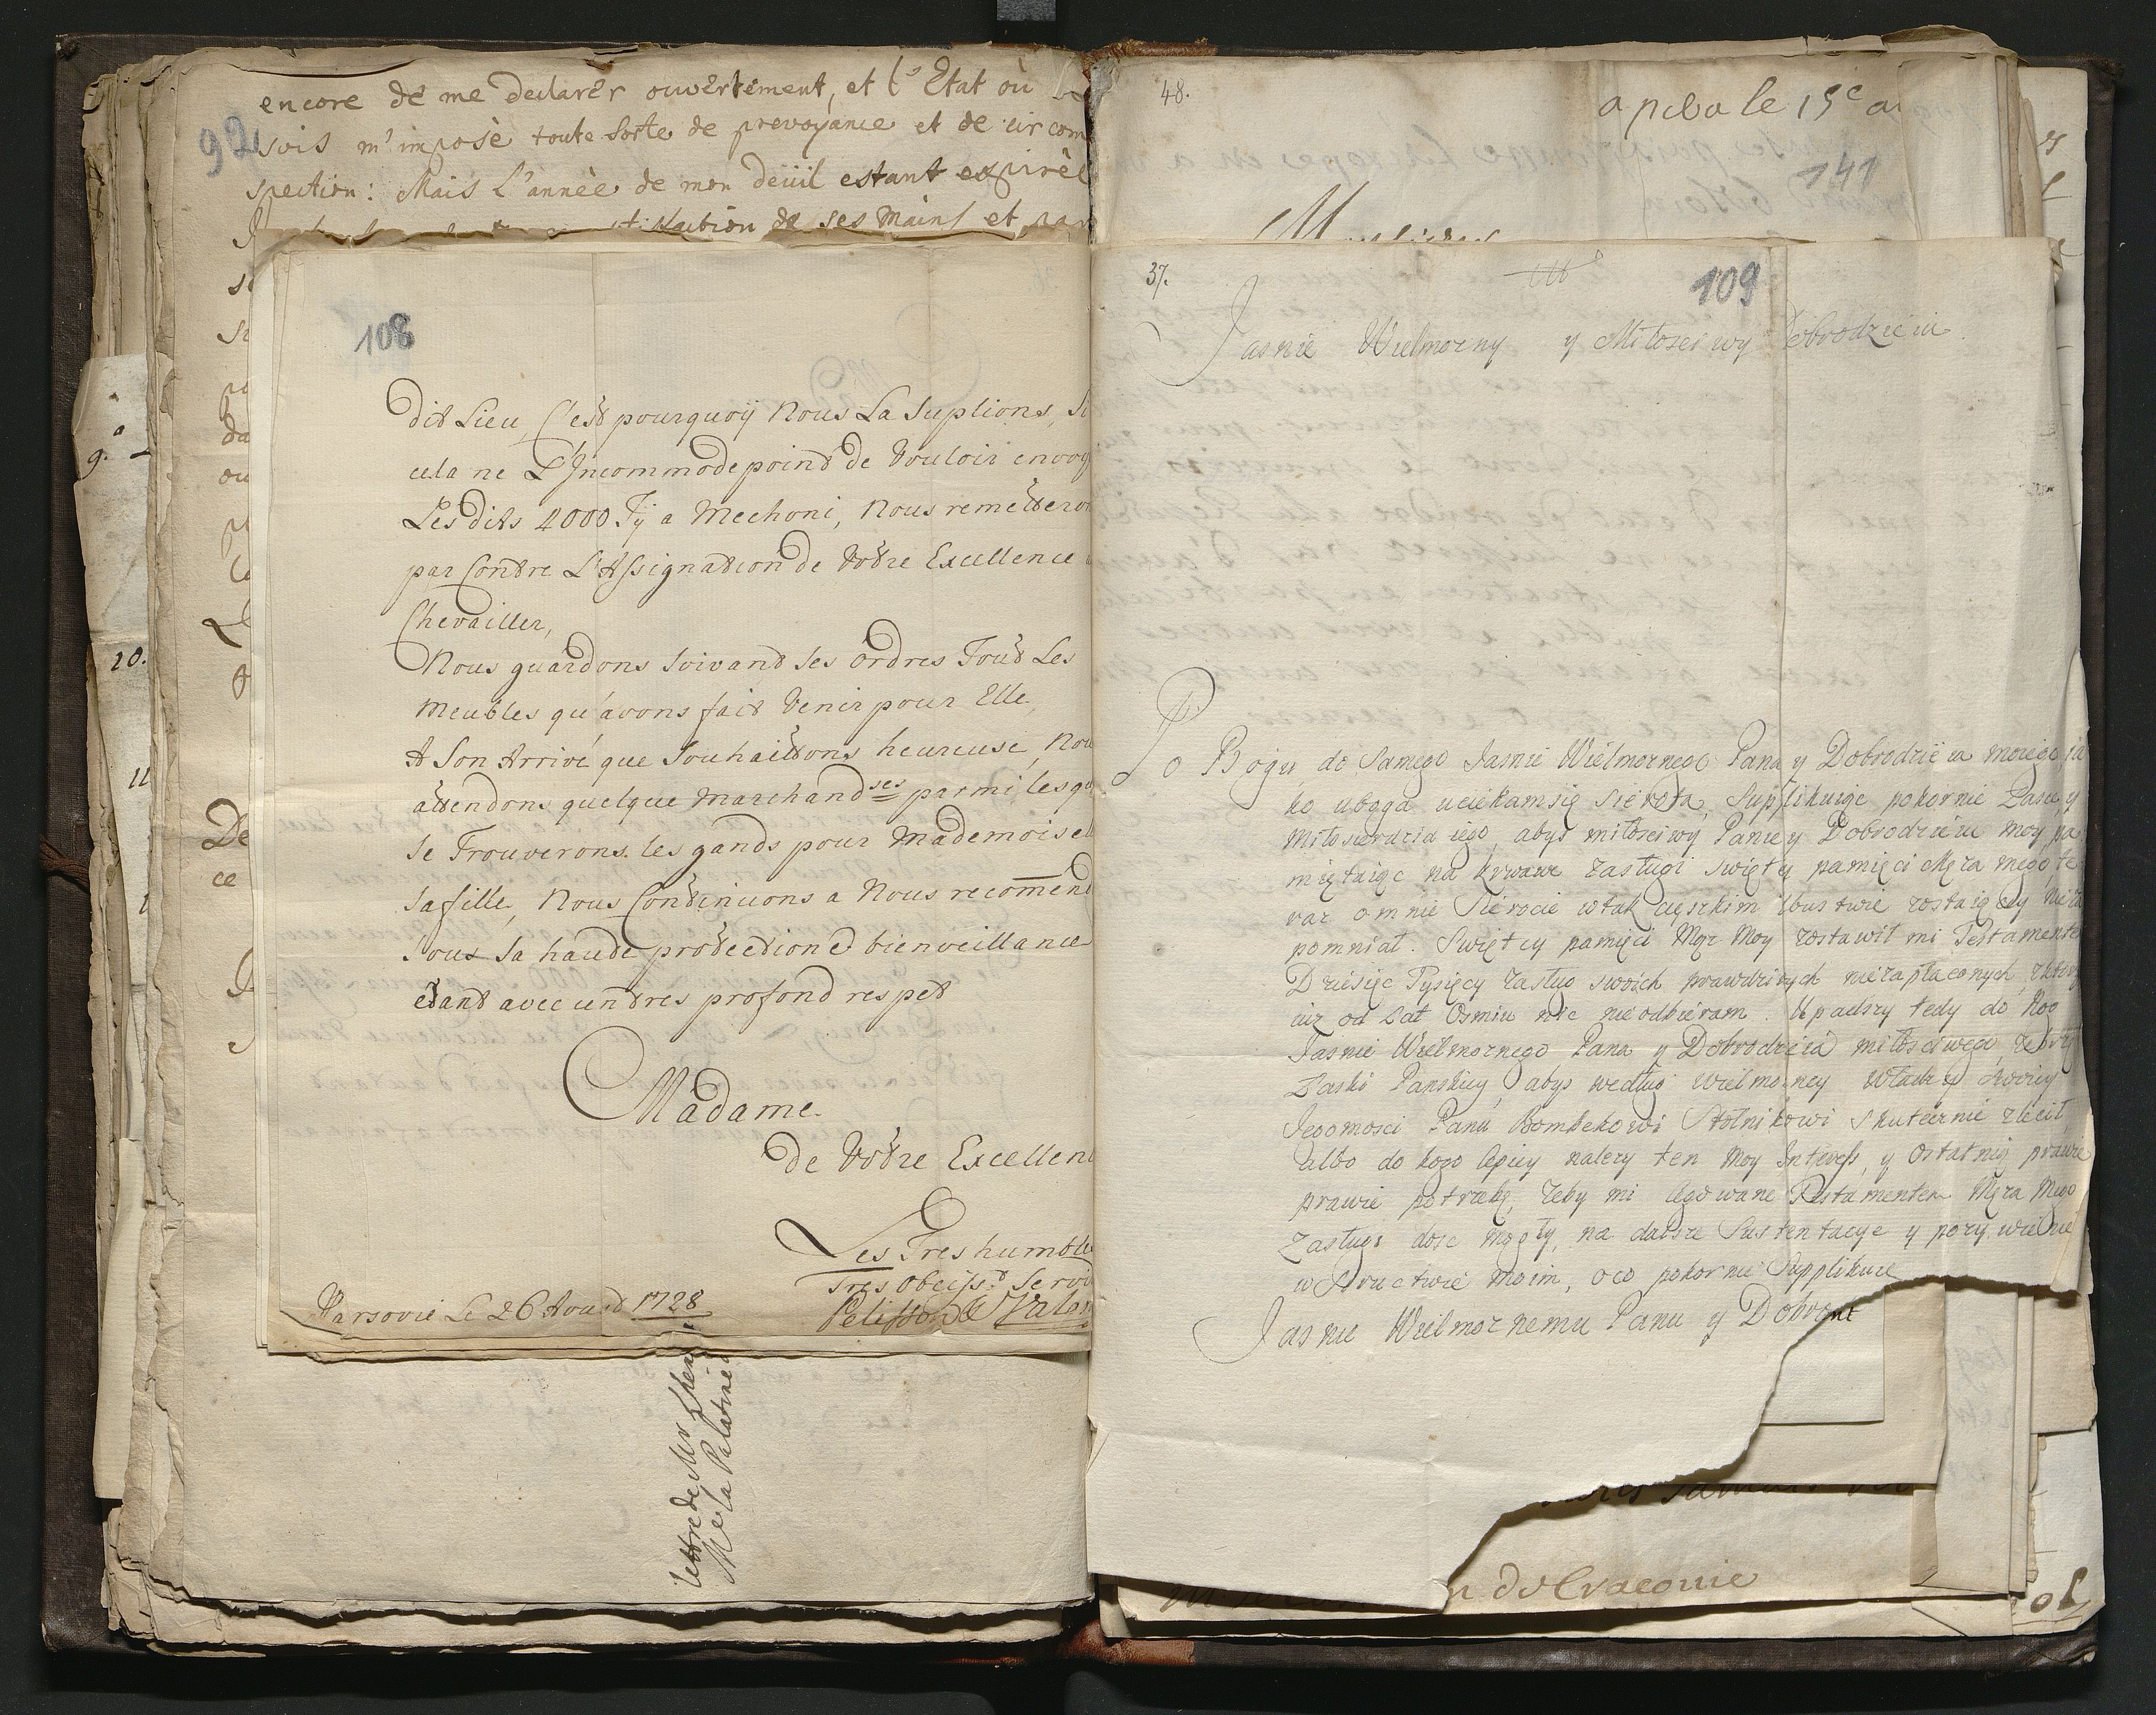 encore de me declarer ouvertement, et l'Etat où
92
suis m'impose toute sorte de prevoyance et de circom
spection: Mais L'année de mon deüil estant expirée
de ses mains et par
108
dit Lieu C'est pourquoÿ Nous La Suplions, Si
cela ne L'Incommode point de Vouloir envoy
Les dits 4000 Tÿ a Mechoni, Nous remetteron
par Contre L'Assignation de Votre Excellence
Chevailler,
Nous guardons Suivant ses Ordres Tout Les
Meubles qu'avons fait Venir pour Elle,
A Son Arrivé que Souhaittons heureuse, Nou
attendons quelque Marchand.ses parmi lesq
Se Trouverons les gands pour Mademoisel
Sa fille, Nous Continuons a Nous recom̅end
Sous Sa haute protection et bienveillance
etant avec un tres profond respet
Madame
de Votre Excellen
Les Tres humble
Tres Obeisst Servi
Pelisson & Valen
Varsovie Le 26 Aoust 1728
lettre de Mr
Me la Palatine
De
ce
9.
10.
11
48.
a peba le 15e a
141
37.
109
Jasnie Wielmozny y Miłosciwy Dobrodzieiu
Po Bogu do Samego Jasnie Wielmoznego Pana y Dobrodzieia moiego ja
ko uboga uciekam się Sierota, Supplikuiąc pokornie Łasce y
Miłosierdzia iego, abyś miłosciwy Panie y Dobrodzieiu moy, pa
miętaiąc na krwawe zasługi swięty pamięci Męza mego, te
raz o mnie Sierocie w tak cięszkim ubustwie zostaiący nieza
pomniał. Swięty pamięci Mąz Moy zostawił mi Testamente
Dziesięc Tysięcy zasług swoich prawdziwych niezapłaconych, ktory
iuz od Lat Osmiu nic nie odbieram. Upadszy tedy do Nog
Jasnie Wielmoznego Pana y Dobrodzieia miłosciwego, zebrzę
Łaski Panskiey, abyś według wielmozney władzy swoiey
Jegomosci Panu Bombekowi Stolnikowi skutecznie zlecił,
albo do kogo lepiey nalezy ten moy Interess, y ostatnią prawie
prawie potrzebę, zeby mi legowane Testamentem Męza Mego
zasługi dosc mogły, na dalsze Sustentacye y pozywienie
w Sieroctwie moim, o co pokornie Supplikuie
Jasnie Wielmoznemu Panu y Dobrzie
de Cracovie